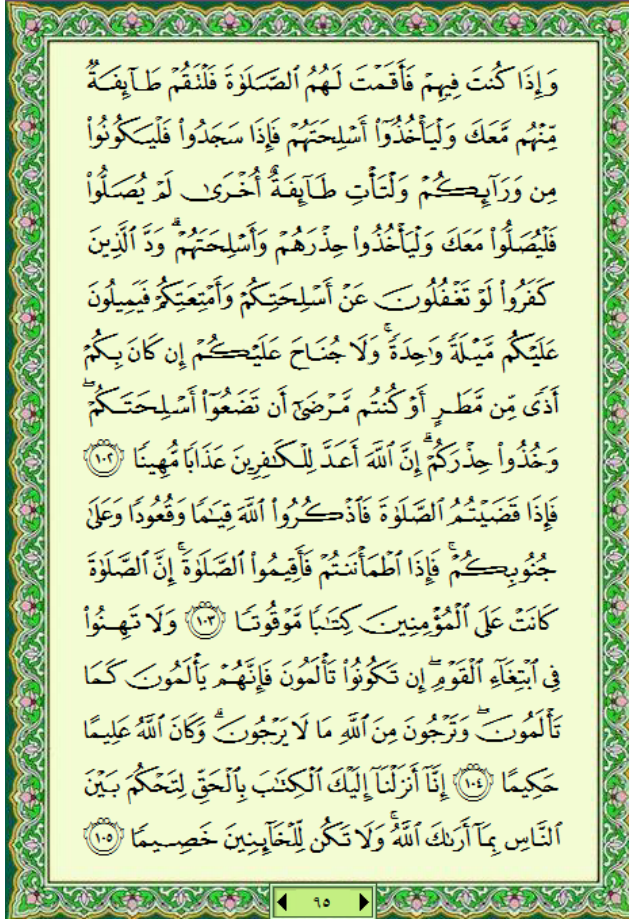 وَإِذَا كُنتَ فِيهِمْ فَأَقَمْتَ لَهُمُ ٱلصَّلَوٰةَ فَلْتَقُمْ طَآئِفَةٌ
مِّنْهُم مَّعَكَ وَلْيَأْخُذُوٓا۟ أَسْلِحَتَهُمْ فَإِذَا سَجَدُوا۟ فَلْيَكُونُوا۟
مِن وَرَآئِكُمْ وَلْتَأْتِ طَآئِفَةٌ أُخْرَىٰ لَمْ يُصَلُّوا۟
فَلْيُصَلُّوا۟ مَعَكَ وَلْيَأْخُذُوا۟ حِذْرَهُمْ وَأَسْلِحَتَهُمْ ۗ وَدَّ ٱلَّذِينَ
كَفَرُوا۟ لَوْ تَغْفُلُونَ عَنْ أَسْلِحَتِكُمْ وَأَمْتِعَتِكُمْ فَيَمِيلُونَ
عَلَيْكُم مَّيْلَةً وَٰحِدَةً ۚ وَلَا جُنَاحَ عَلَيْكُمْ إِن كَانَ بِكُمْ
أَذًى مِّن مَّطَرٍ أَوْ كُنتُم مَّرْضَىٰٓ أَن تَضَعُوٓا۟ أَسْلِحَتَكُمْ ۖ
وَخُذُوا۟ حِذْرَكُمْ ۗ إِنَّ ٱللَّهَ أَعَدَّ لِلْكَٰفِرِينَ عَذَابًا مُّهِينًا ١٠٢
فَإِذَا قَضَيْتُمُ ٱلصَّلَوٰةَ فَٱذْكُرُوا۟ ٱللَّهَ قِيَٰمًا وَقُعُودًا وَعَلَىٰ
جُنُوبِكُمْ ۚ فَإِذَا ٱطْمَأْنَنتُمْ فَأَقِيمُوا۟ ٱلصَّلَوٰةَ ۚ إِنَّ ٱلصَّلَوٰةَ
كَانَتْ عَلَى ٱلْمُؤْمِنِينَ كِتَٰبًا مَّوْقُوتًا ١٠٣ وَلَا تَهِنُوا۟
فِى ٱبْتِغَآءِ ٱلْقَوْمِ ۖ إِن تَكُونُوا۟ تَأْلَمُونَ فَإِنَّهُمْ يَأْلَمُونَ كَمَا
تَأْلَمُونَ ۖ وَتَرْجُونَ مِنَ ٱللَّهِ مَا لَا يَرْجُونَ ۗ وَكَانَ ٱللَّهُ عَلِيمًا
حَكِيمًا ١٠٤ إِنَّآ أَنزَلْنَآ إِلَيْكَ ٱلْكِتَٰبَ بِٱلْحَقِّ لِتَحْكُمَ بَيْنَ
ٱلنَّاسِ بِمَآ أَرَىٰكَ ٱللَّهُ ۚ وَلَا تَكُن لِّلْخَآئِنِينَ خَصِيمًا ١٠٥
٩٥